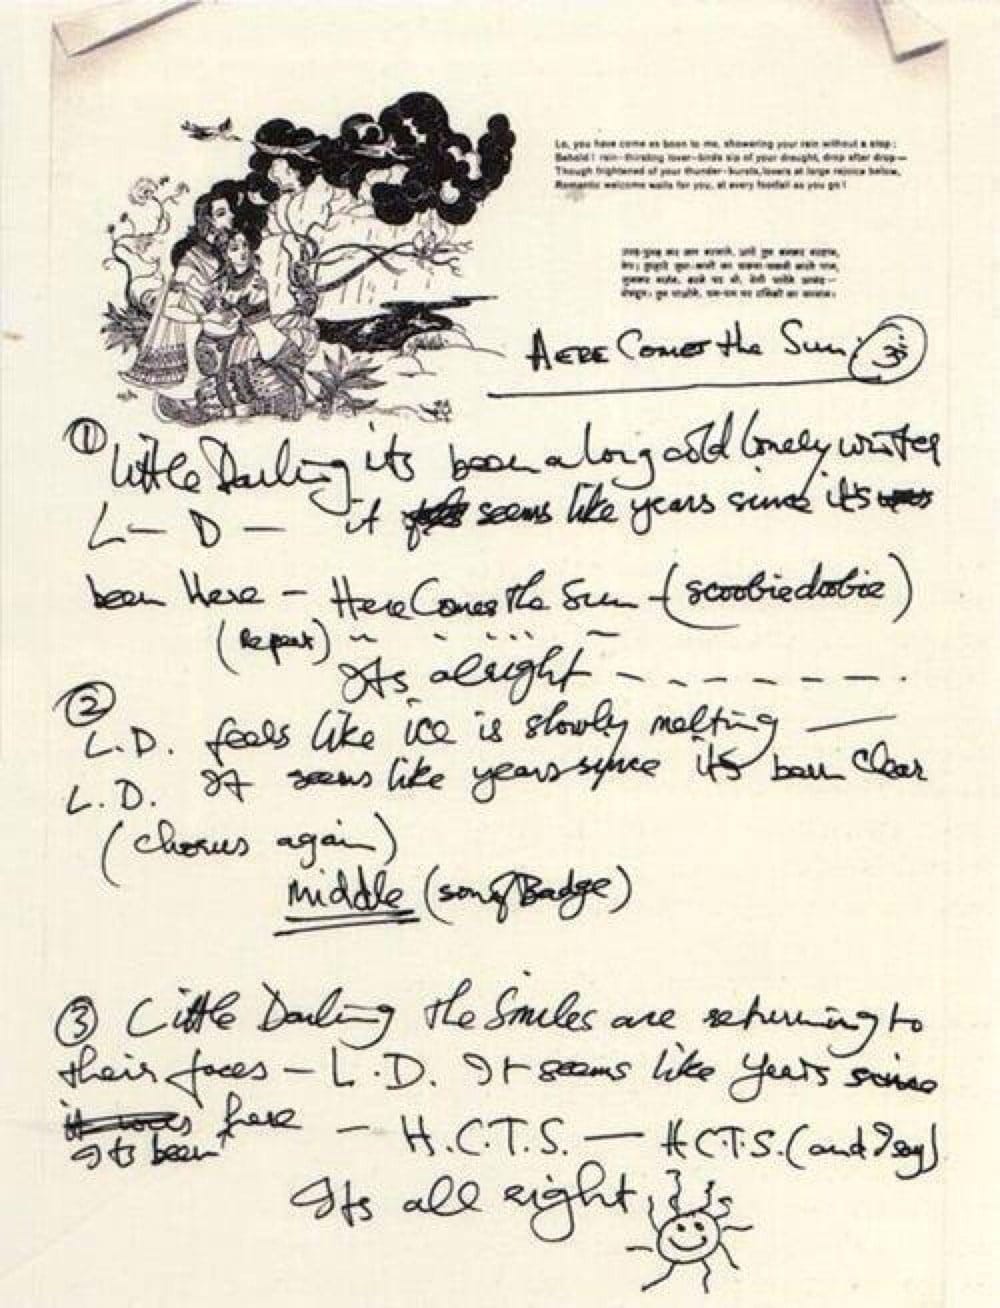 Lo, you have come as boon to me, showering your rain without a stop:
Behold! rain-thirsting lover-birds sip of your draught, drop after drop—
Though frightened of your thunder-bursts, lovers at large rejoice below,
Romantic welcome waits for you, at every footfall as you go!
HERE Comes the Sun. ॐ
① Little Darling its been a long cold lonely winter
L — D — it seems like years since it's
been Here — Here Comes The Sun — (scoobiedoobie)
(Repeat) " " " "
Its alright - - - - - - - .
②
L.D. feels like ice is slowly melting —
L.D. It seems like years since its been Clear
(chorus again)
middle (song Badge)
③ Little Darling the Smiles are returning to
their faces — L.D. It seems like Years since
its been here — H.C.T.S. — H.C.T.S. (and I say)
Its all right